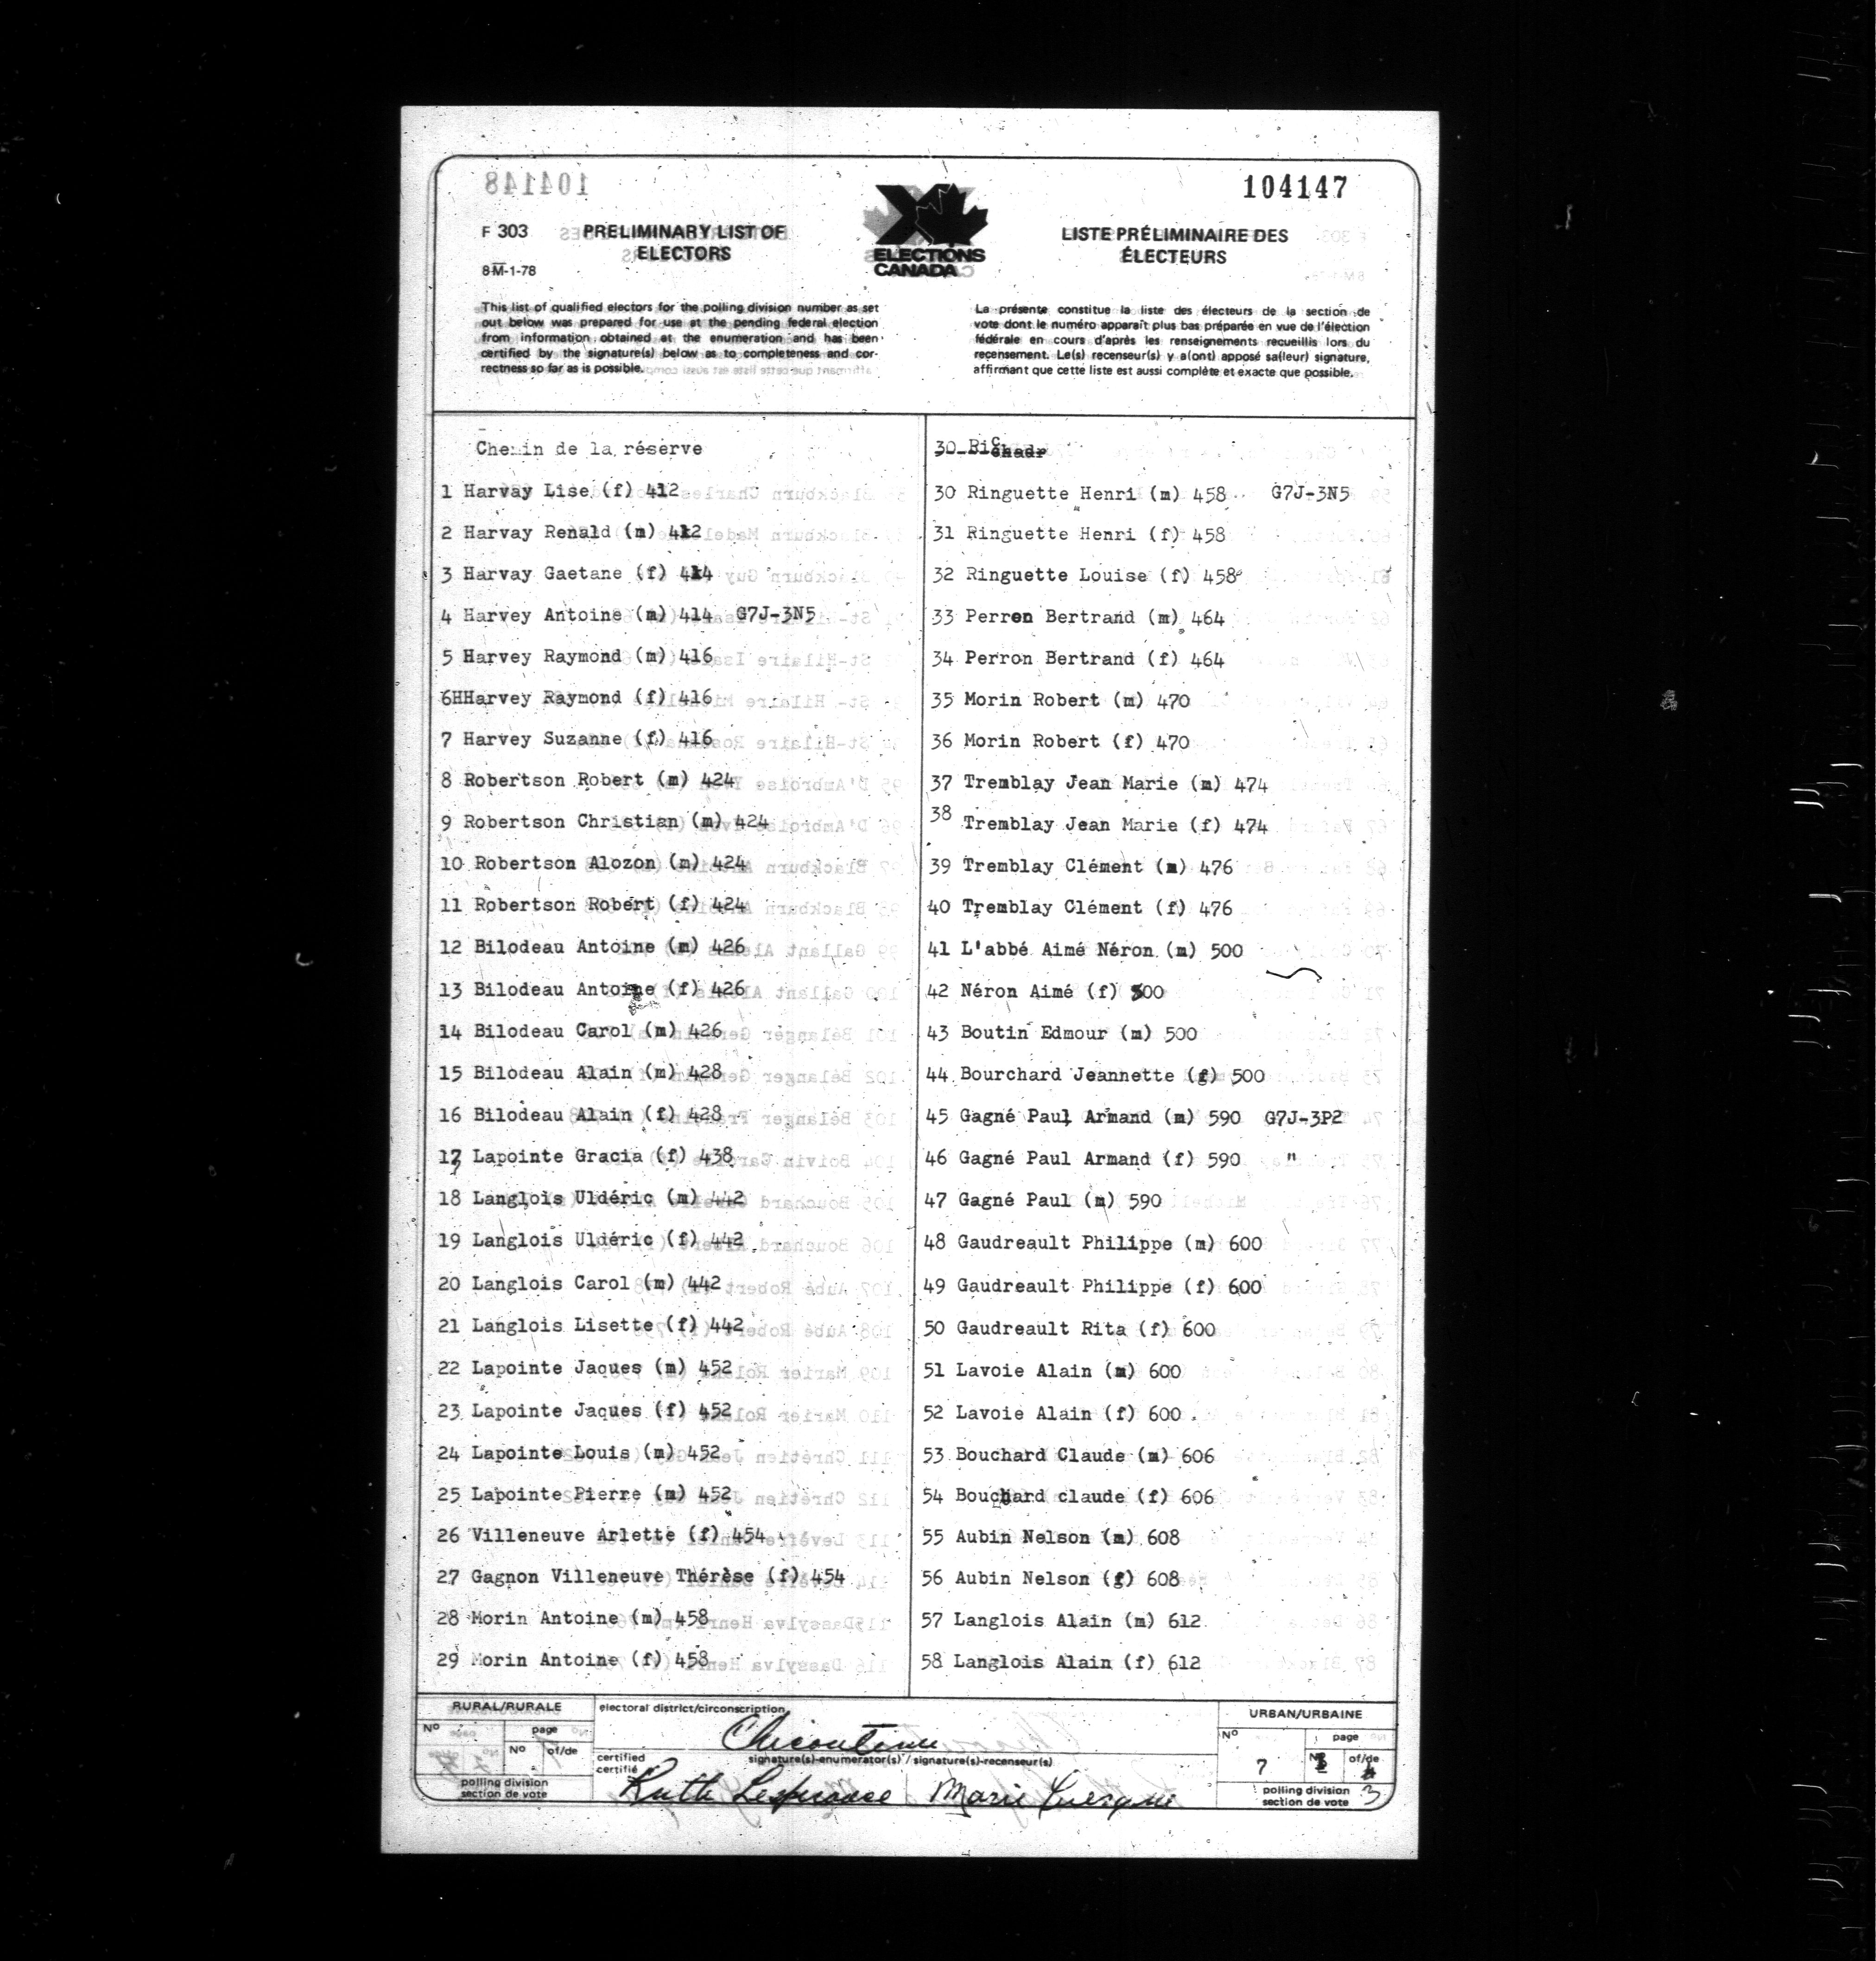 104147
F 303
PRELIMINARY LIST OF
ELECTORS
8-M-1-78
ELECTIONS
CANADA
LISTE PRÉLIMINAIRE DES
ÉLECTEURS
This list of qualified electors for the polling division number as set
out below was prepared for use at the pending federal election
from information obtained at the enumeration and has been
certified by the signature(s) below as to completeness and cor-
rectness so far as is possible.
La présente constitue la liste des électeurs de la section de
vote dont le numéro apparaît plus bas préparée en vue de l'élection
fédérale en cours d'après les renseignements recueillis lors du
recensement. Le(s) recenseur(s) y a(ont) apposé sa(leur) signature,
affirmant que cette liste est aussi complète et exacte que possible.
Chemin de la réserve
1 Harvay Lise (f) 412
2 Harvay Renald (m) 412
3 Harvay Gaetane (f) 414
4 Harvey Antoine (m) 414 G7J-3N5
5 Harvey Raymond (m) 416
6HHarvey Raymond (f) 416
7 Harvey Suzanne (f) 416
8 Robertson Robert (m) 424
9 Robertson Christian (m) 424
10 Robertson Alozon (m) 424
11 Robertson Robert (f) 424
12 Bilodeau Antoine (m) 426
13 Bilodeau Antoine (f) 426
14 Bilodeau Carol (m) 426
15 Bilodeau Alain (m) 428
16 Bilodeau Alain (f) 428
17 Lapointe Gracia (f) 438
18 Langlois Uldéric (m) 442
19 Langlois Uldéric (f) 442
20 Langlois Carol (m) 442
21 Langlois Lisette (f) 442
22 Lapointe Jaques (m) 452
23 Lapointe Jaques (f) 452
24 Lapointe Louis (m) 452
25 Lapointe Pierre (m) 452
26 Villeneuve Arlette (f) 454
27 Gagnon Villeneuve Thérèse (f) 454
28 Morin Antoine (m) 458
29 Morin Antoine (f) 458
30 Ringuette Henri (m) 458 G7J-3N5
31 Ringuette Henri (f) 458
32 Ringuette Louise (f) 458
33 Perron Bertrand (m) 464
34 Perron Bertrand (f) 464
35 Morin Robert (m) 470
36 Morin Robert (f) 470
37 Tremblay Jean Marie (m) 474
38 Tremblay Jean Marie (f) 474
39 Tremblay Clément (m) 476
40 Tremblay Clément (f) 476
41 L'abbé Aimé Néron (m) 500
42 Néron Aimé (f) 500
43 Boutin Edmour (m) 500
44 Bourchard Jeannette (f) 500
45 Gagné Paul Armand (m) 590 G7J-3P2
46 Gagné Paul Armand (f) 590 "
47 Gagné Paul (m) 590
48 Gaudreault Philippe (m) 600
49 Gaudreault Philippe (f) 600
50 Gaudreault Rita (f) 600
51 Lavoie Alain (m) 600
52 Lavoie Alain (f) 600
53 Bouchard Claude (m) 606
54 Bouchard claude (f) 606
55 Aubin Nelson (m) 608
56 Aubin Nelson (f) 608
57 Langlois Alain (m) 612
58 Langlois Alain (f) 612
RURAL/RURALE
No
page
No of/de
polling division
section de vote
electoral district/circonscription
Chicoutimi
certified
certifié
signature(s)-enumerator(s) / signature(s)-recenseur(s)
Ruth Marie
URBAN/URBAINE
No
page
of/de
7
3
polling division
section de vote